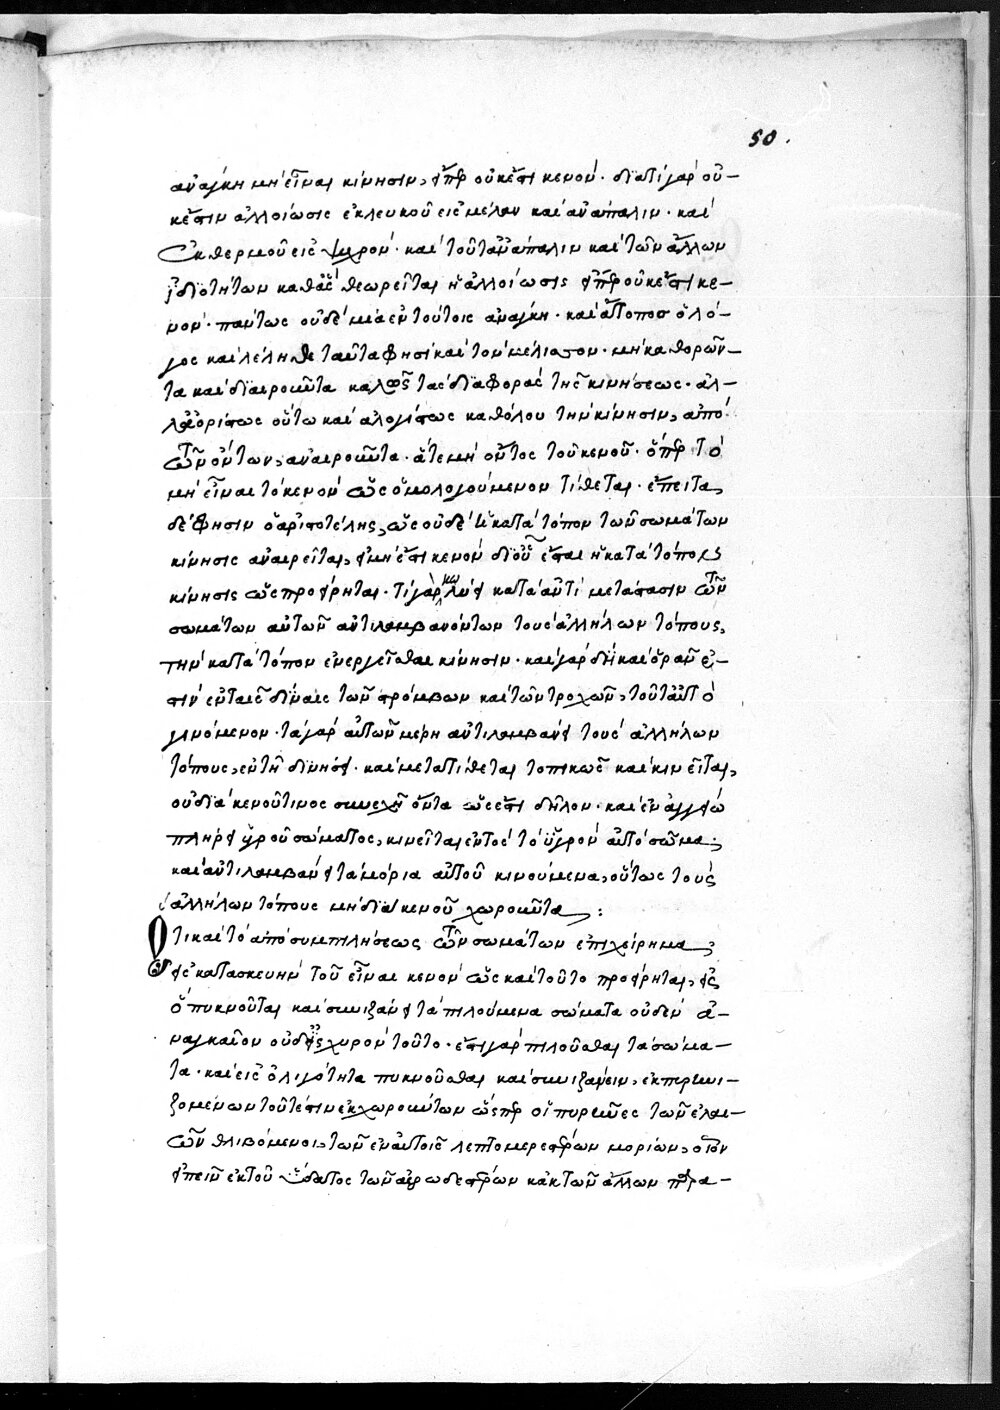 50.
ανάγκη μὴ εἶναι κίνησιν, εἴπερ οὐκ ἔστι κενόν· διατί γὰρ οὐ-
κ ἔστιν ἀλλοίωσις ἐκ λευκοῦ εἰς μέλαν καὶ ἀνάπαλιν· καὶ
ἐκ θερμοῦ εἰς ψυχρόν· καὶ τοῦτ' ἀνάπαλιν καὶ τῶν ἄλλων
ἰδιοτήτων καθὰς θεωρεῖται ἡ ἀλλοίωσις εἴπερ οὐκ ἔστι κε-
νόν· πάντως οὐδὲ μία ἐν τούτοις ἀνάγκη· καὶ ἄτοπος ὁ λό-
γος καὶ λέληθε ταῦτα φησὶ καὶ τὸν μέλισσον· μὴ καθορῶν-
τα καὶ διαιροῦντα καλῶς τὰς διαφορὰς τῆς κινήσεως· ἀλ-
λ' ἀορίστως οὕτω καὶ ἀλογίστως καθόλου τὴν κίνησιν, ἀπὸ
τῶν ὄντων, ἀναιροῦντα· ἅτε μὴ ὄντος τοῦ κενοῦ· ὅπερ τὸ
μὴ εἶναι τὸ κενὸν ὡς ὁμολογούμενον τίθεται· ἔπειτα
δὲ φησὶν ὁ ἀριστοτέλης, ὡς οὐδὲ ἡ κατὰ τόπον τῶν σωμάτων
κίνησις ἀναιρεῖται, εἰ μὴ ἔστι κενὸν δι' οὗ ἔσται ἡ κατὰ τόπους
κίνησις ὡς προείρηται· τί γὰρ κωλύει κατὰ ἀντιμετάστασιν τῶν
σωμάτων αὐτῶν ἀντιλαμβανόντων τοὺς ἀλλήλων τόπους,
τὴν κατὰ τόπον ἐνεργεῖσθαι κίνησιν· καὶ γὰρ δὴ καὶ ὁρᾶν ἐ-
στὶν ἐν ταῖς δίναις τῶν στρόμβων καὶ τῶν τροχῶν, τοῦτ' αὐτὸ
γινόμενον· τὰ γὰρ αὐτῶν μέρη ἀντιλαμβάνει τοὺς ἀλλήλων
τόπους, ἐν τῇ δινήσει· καὶ μετατίθεται τοπικῶς καὶ κινεῖται,
οὐ διὰ κενοῦ τινος συνεχῆ ὄντα ὡς ἐστὶ δῆλον· καὶ ἐν ἀγγείω
πλήρει ὑγροῦ σώματος, κινεῖται ἐντὸς τὸ ὑγρὸν αὐτὸ σῶμα,
καὶ ἀντιλαμβάνει τὰ μόρια αὐτοῦ κινούμενα, οὕτως τοὺς
ἀλλήλων τόπους μὴ διὰ κενοῦ χωροῦντα :
Ὅτι καὶ τὸ ἀπὸ συμπιλήσεως τῶν σωμάτων ἐπιχείρημα,
εἰς κατασκευὴν τοῦ εἶναι κενὸν ὡς καὶ τοῦτο προείρηται, εἰς
ὃ πυκνοῦται καὶ συνιζάνει τὰ πιλούμενα σώματα οὐδὲν ἀ-
ναγκαῖον οὐδ' ἰσχυρὸν τοῦτο· ἔστι γὰρ πιλοῦσθαι τὰ σώμα-
τα· καὶ εἰς ὀλιγότητα πυκνοῦσθαι καὶ συνιζάνειν, ἐκπυρηνι-
ζομένων τουτέστιν ἐκχωρούντων ὥσπερ οἱ πυρῆνες τῶν ἐλαι-
ῶν θλιβόμενοι, τῶν ἐν αὐτοῖς λεπτομερεστέρων μορίων, οἷον
εἰπεῖν ἐκ τοῦ ὕδατος τῶν ἀερωδεστέρων κἀκ τῶν ἄλλων παρα-